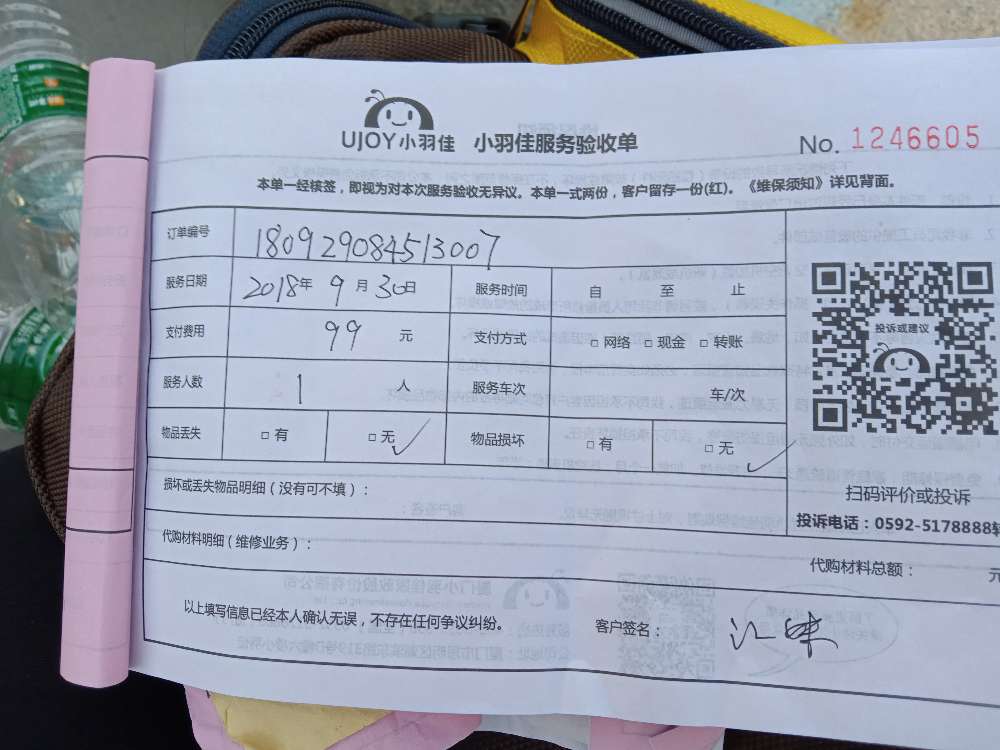 UJOY小羽佳 小羽佳服务验收单 No. 1246605
本单一经核签，即视为对本次服务验收无异议。本单一式两份，客户留存一份(红)。《维保须知》详见背面。
订单编号 180929084513007
服务日期 2018年 9月 30日 服务时间 自 至 止
支付费用 99 元 支付方式 □ 网络 □ 现金 □ 转账
服务人数 1 人 服务车次 车/次
物品丢失 □ 有 □ 无 ✓ 物品损坏 □ 有 □ 无 ✓
投诉或建议
扫码评价或投诉
投诉电话：0592-5178888转
损坏或丢失物品明细（没有可不填）：
代购材料明细（维修业务）： 代购材料总额： 元
以上填写信息已经本人确认无误，不存在任何争议纠纷。 客户签名：